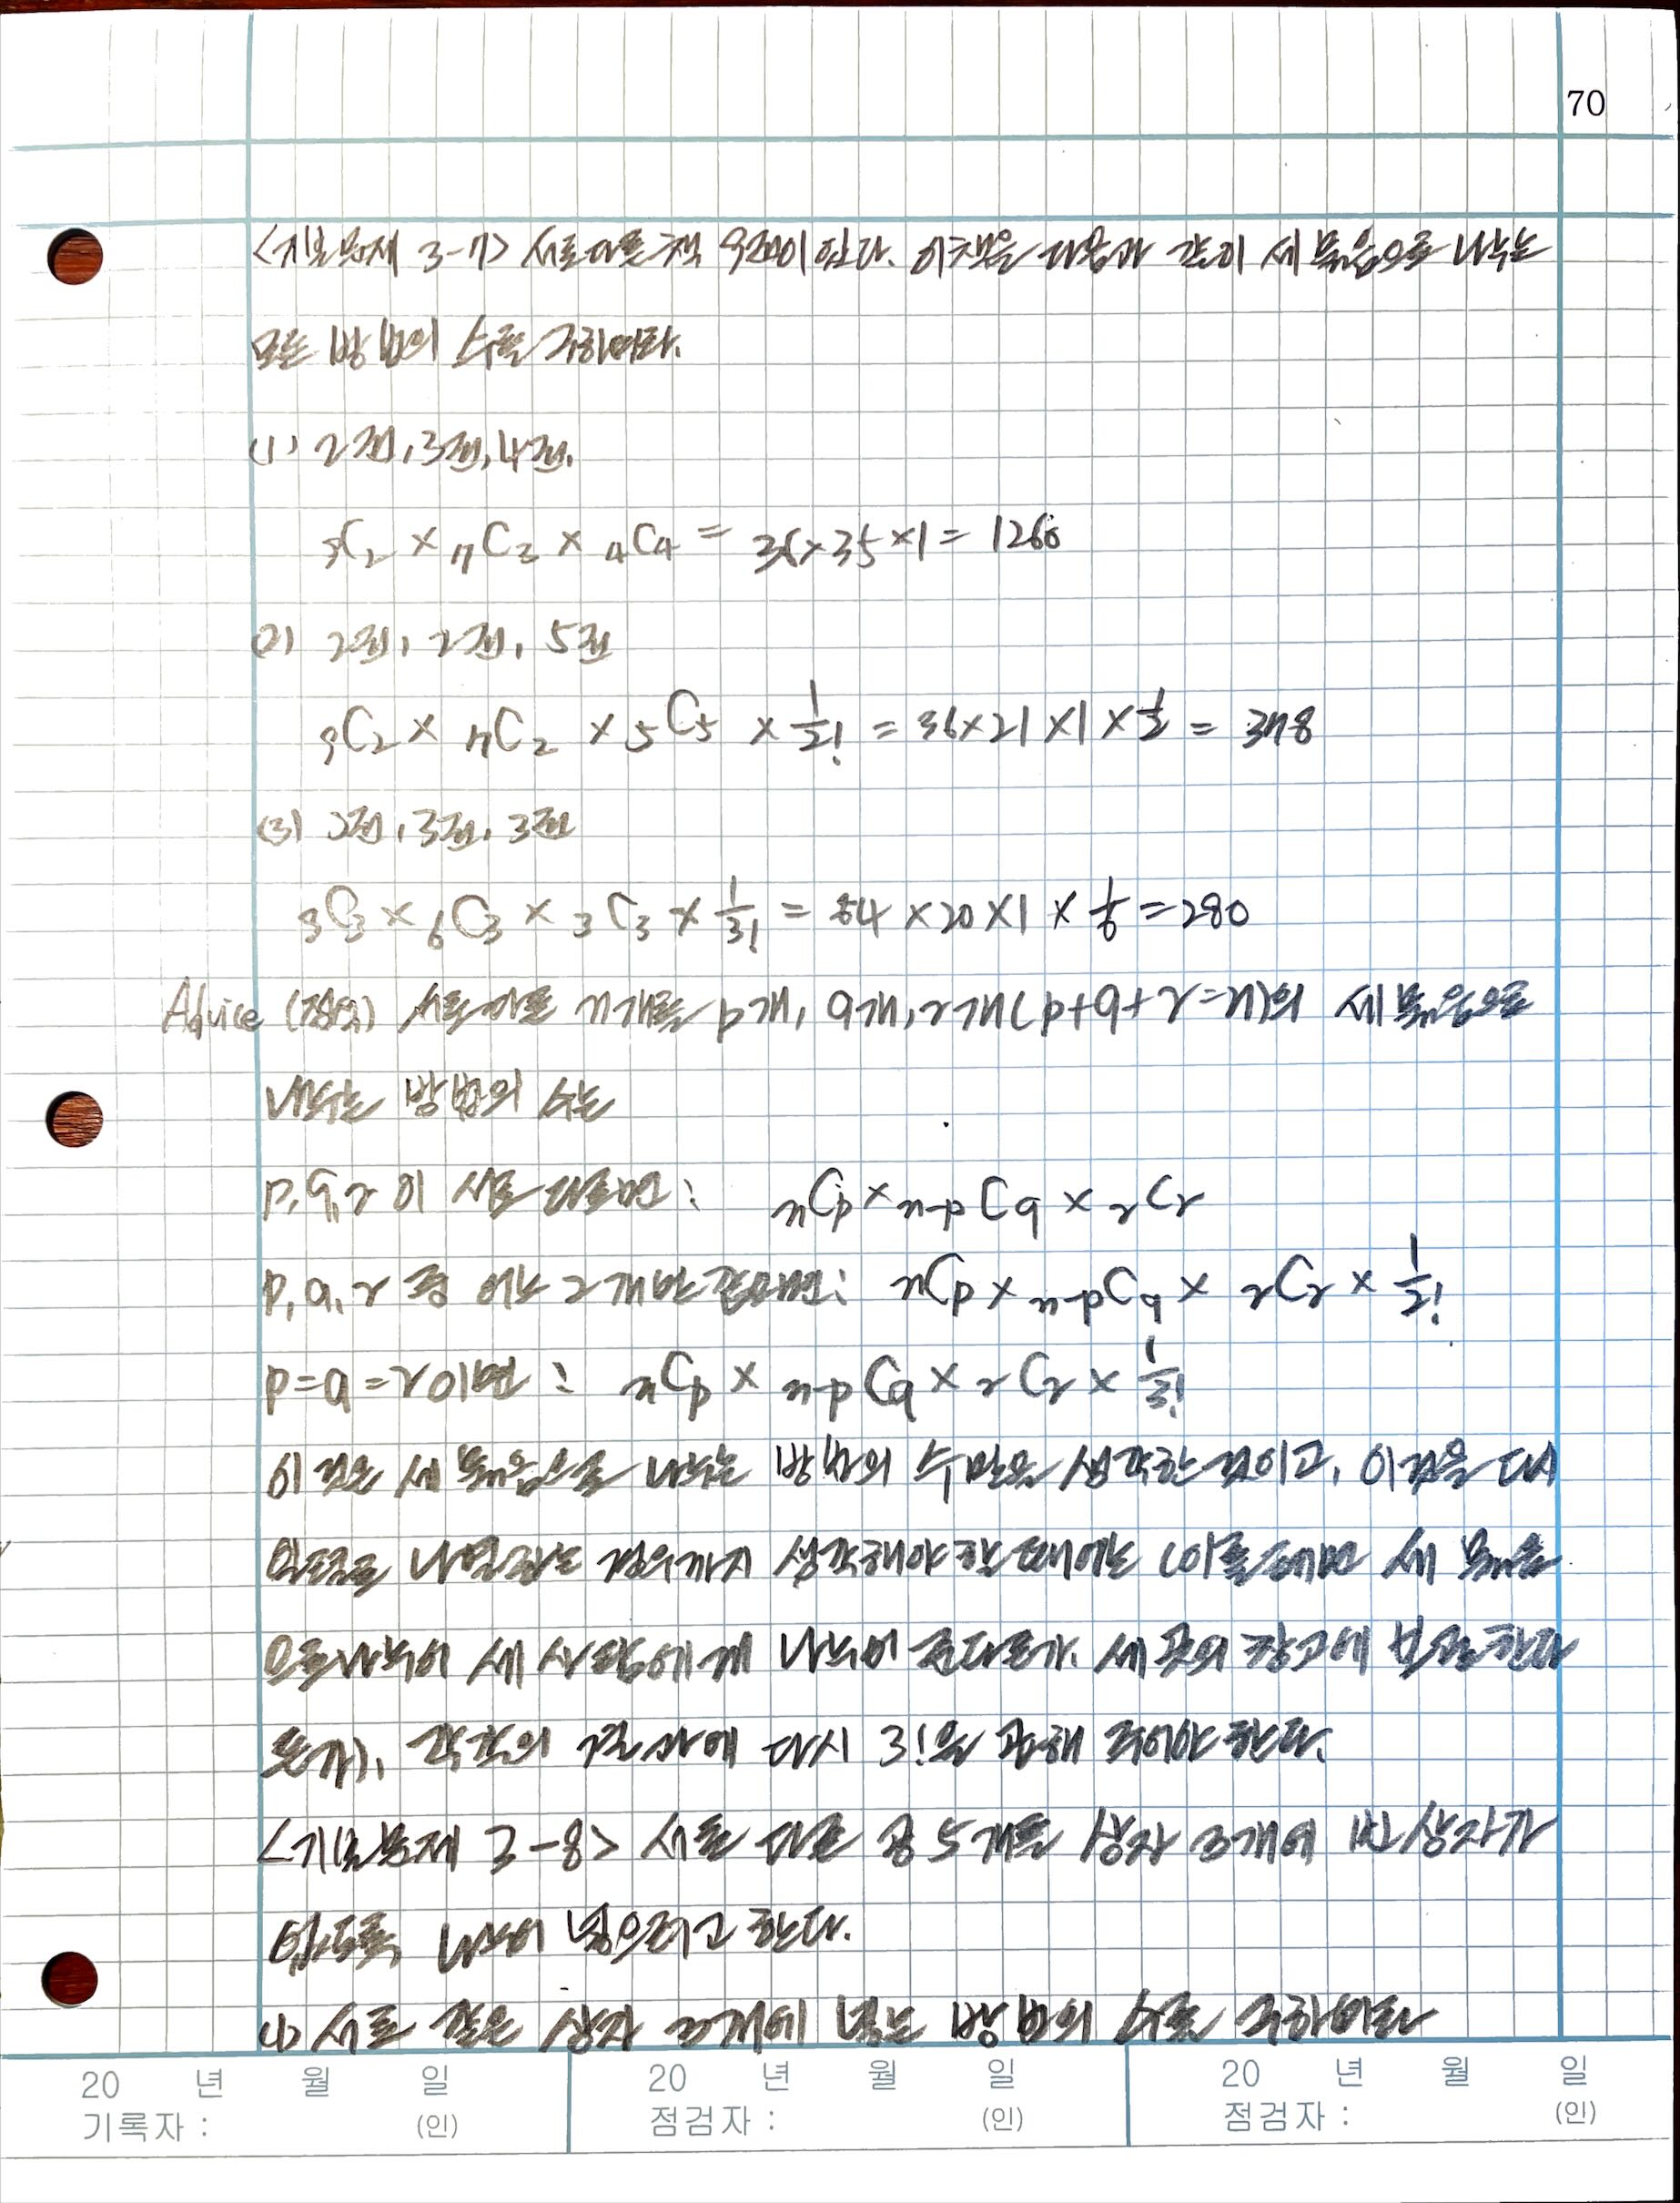 70
<기본문제 3-7> 서로 다른 책 9권이 있다. 이 책을 다음과 같이 세 묶음으로 나누는
모든 방법의 수를 구하여라.
(1) 2권, 3권, 4권.
9C2 × 7C3 × 4C4 = 36×35×1 = 1260
(2) 2권, 2권, 5권
9C2 × 7C2 × 5C5 × 1/2! = 36×21×1×1/2 = 378
(3) 3권, 3권, 3권
9C3 × 6C3 × 3C3 × 1/3! = 84×20×1×1/6 = 280
Advice (정석) 서로 다른 n개를 p개, q개, r개(p+q+r=n)의 세 묶음으로
나누는 방법의 수는
p, q, r이 서로 다르면 : nCp × n-pCq × rCr
p, q, r 중 어느 2개만 같으면 : nCp × n-pCq × rCr × 1/2!
p=q=r이면 : nCp × n-pCq × rCr × 1/3!
이것은 세 묶음으로 나누는 방법의 수만을 생각한 것이고, 이것을 다시
일렬로 나열하는 경우까지 생각해야 할 때에는 (이를테면 세 묶음
으로 나누어 세 사람에게 나누어 준다든가, 세 곳의 창고에 보관한다
든가), 각각의 결과에 다시 3!을 곱해 주어야 한다.
<기본문제 3-8> 서로 다른 공 5개를 상자 3개에 빈 상자가
없도록 나누어 넣으려고 한다.
(1) 서로 같은 상자 3개에 넣는 방법의 수를 구하여라
20 년 월 일 20 년 월 일 20 년 월 일
기록자 : (인) 점검자 : (인) 점검자 : (인)